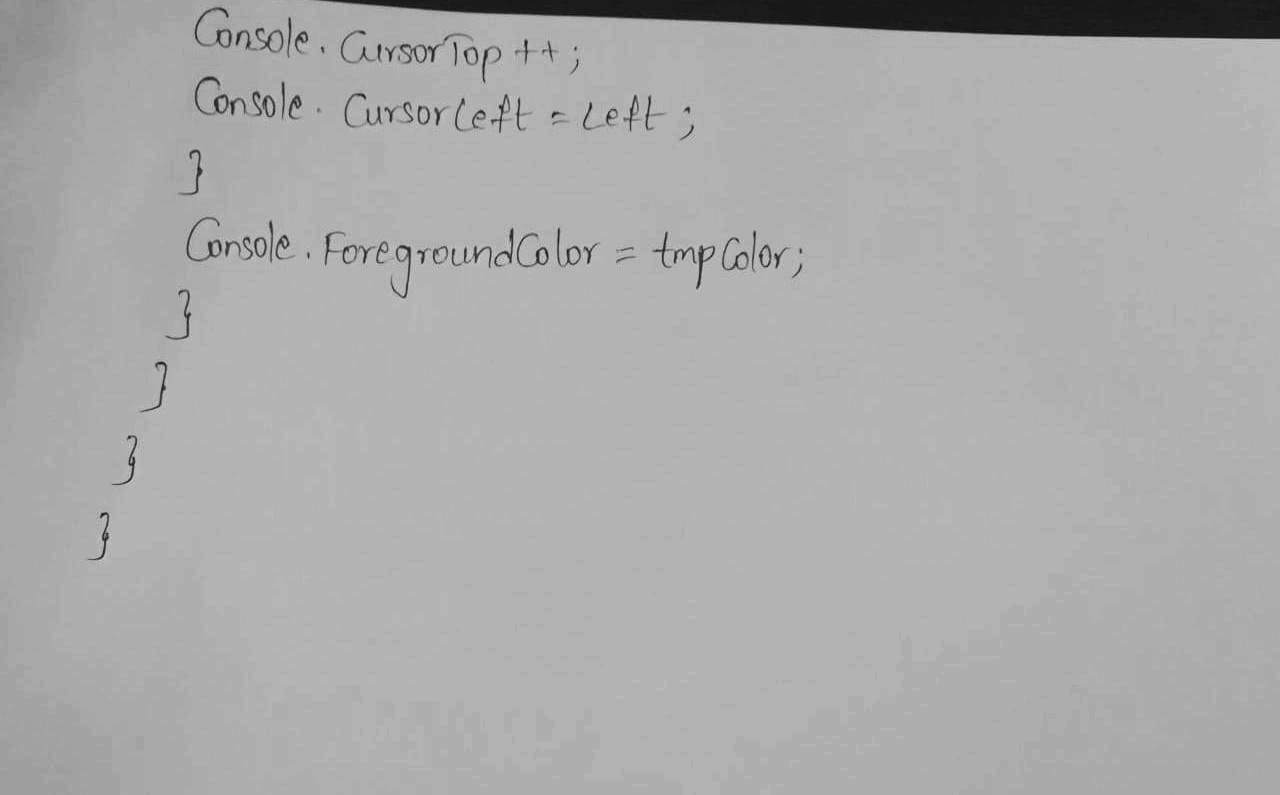 Console. CursorTop ++;
Console. CursorLeft = Left;
}
Console. ForegroundColor = tmpColor;
}
}
}
}